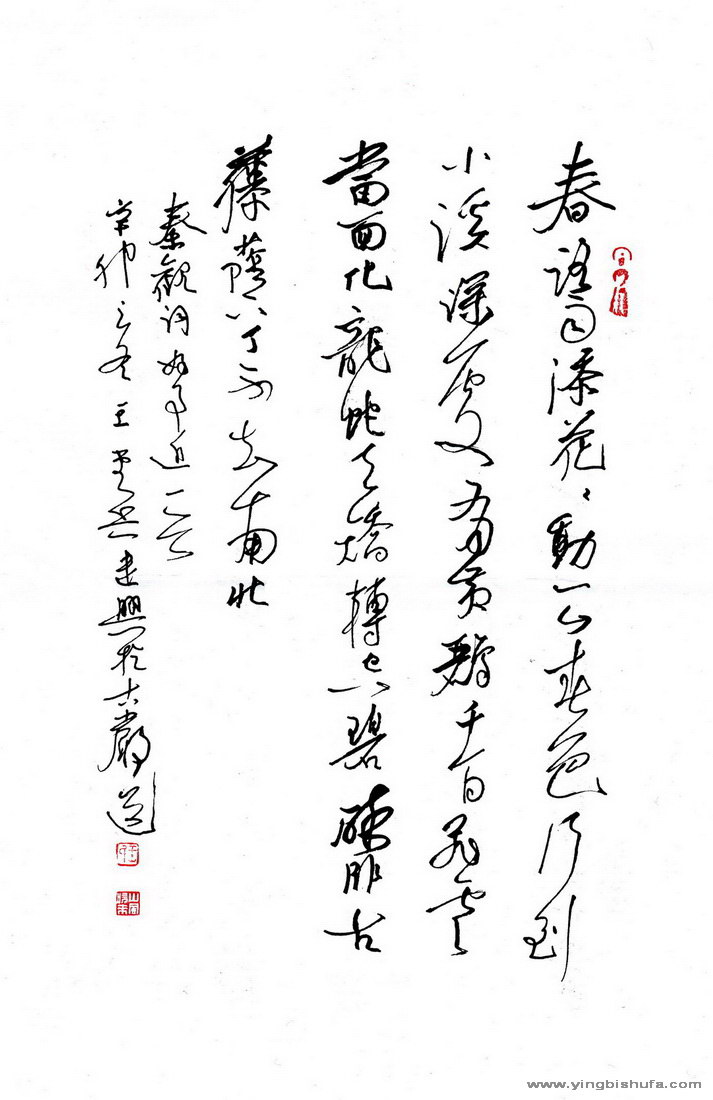 春路雨添花〻動一山春色行到
小溪深處有黃鸝千百飛雲
當面化龍蛇夭矯轉空碧醉卧古
藤蔭下了不知南北
秦觀詞好事近一首
辛卯之冬王建興於古嚴道
www.yingbishufa.com